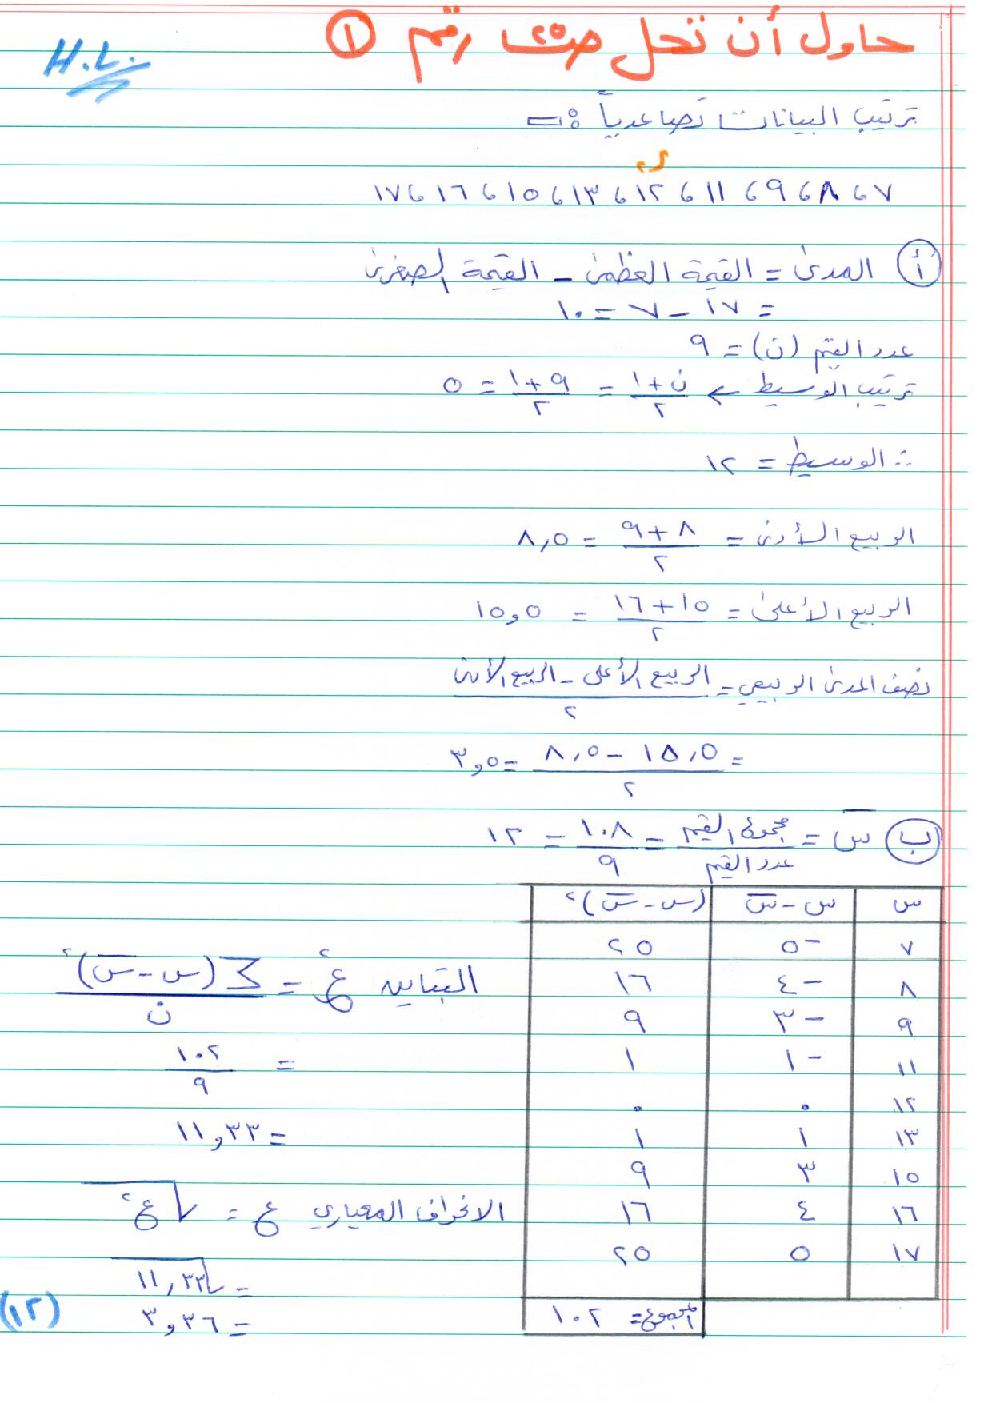 حاول أن تحل ص٢٥ رقم ①
H.L.
ترتيب البيانات تصاعدياً :-
ر
٧ ، ٨ ، ٩ ، ١١ ، ١٢ ، ١٣ ، ١٥ ، ١٦ ، ١٧
أ المدى = القيمة العظمى - القيمة الصغرى
= ١٧ - ٧ = ١٠
عدد القيم (ن) = ٩
ترتيب الوسيط ← (ن+١)/٢ = (٩+١)/٢ = ٥
∴ الوسيط = ١٢
الربيع الأدنى = (٨+٩)/٢ = ٨,٥
الربيع الأعلى = (١٥+١٦)/٢ = ١٥,٥
نصف المدى الربيعي = (الربيع الأعلى - الربيع الأدنى)/٢
= (١٥,٥ - ٨,٥)/٢ = ٣,٥
ب س̄ = مجموع القيم/عدد القيم = ١٠٨/٩ = ١٢
س | س - س̄ | (س - س̄)²
٧ | -٥ | ٢٥
٨ | -٤ | ١٦
٩ | -٣ | ٩
١١ | -١ | ١
١٢ | ٠ | ٠
١٣ | ١ | ١
١٥ | ٣ | ٩
١٦ | ٤ | ١٦
١٧ | ٥ | ٢٥
المجموع = ١٠٢
التباين ع² = Σ(س - س̄)²/ن
= ١٠٢/٩
= ١١,٣٣
الانحراف المعياري ع = √ع²
= √١١,٣٣
= ٣,٣٦
(١٢)